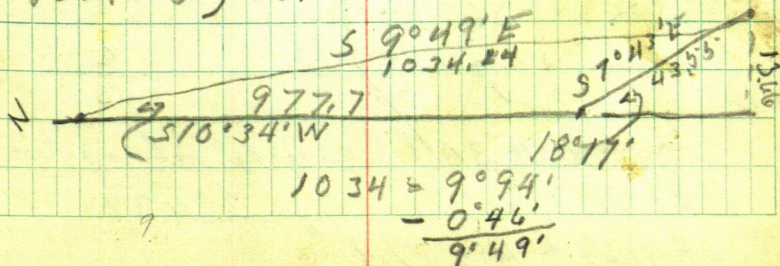 S 9°49'E
1034.24
S 7°43'E
43.55
13.66
N
977.7
S10°34'W
18°17'
1034 = 9°94'
- 0°46'
9°49'